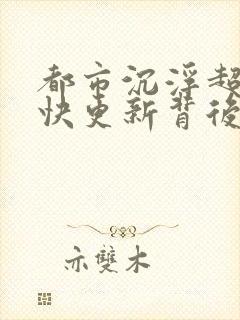 都市沉浮超
快更新背後
亦雙木